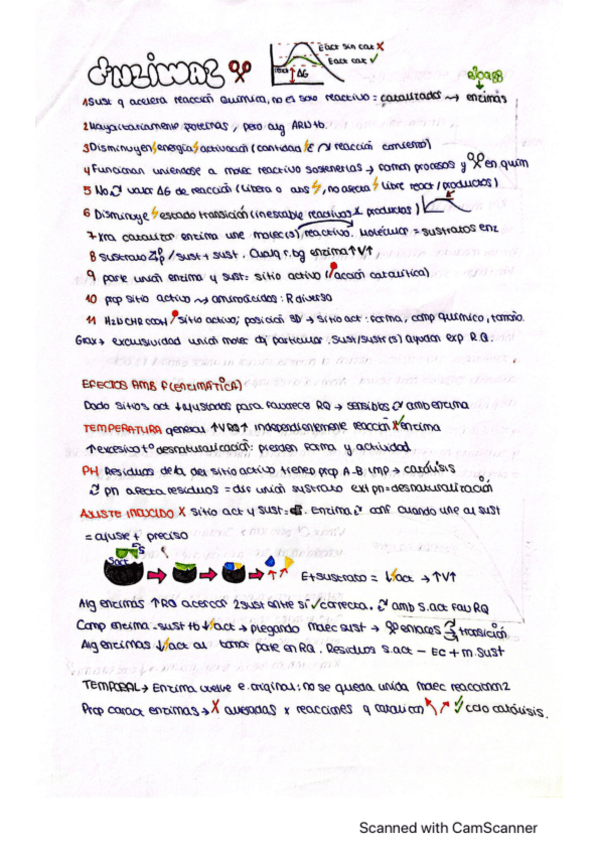 ENZIMAS
Eact sin cat X
Eact cat ✓
ΔG
1 Sust q acelera reacción química, no el solo reactivo = catalizados → enzimas
2 Mayoritariamente proteínas, pero alg ARN tb.
3 Disminuyen energía activación (cantidad E reacción comience)
4 Funcionan uniéndose a molec reactivo sostenerlas → forman procesos y en quim
5 No valor ΔG de reacción (libera o abs, no afecta libre react/productos)
6 Disminuye estado transición (inestable reactivos x productos)
7 Xra catalizar enzima une molec(s) reactivo. Molecular = sustratos enz
8 Sustrato / sust + sust. Cualq r. bg enzima ↑V↑
9 parte unión enzima y sust = sitio activo (acción catalítica)
10 prop sitio activo → aminoácidos: R diverso
11 sitio activo; posición 3D → sitio act: forma, comp químico, tamaño.
Grax → exclusividad unión molec particular. Sust/sustr(s) ayudan exp R.Q.
EFECTOS AMB F(ENZIMÁTICA)
Dado sitios act ajustados para favorece RQ → sensibles amb enzima
TEMPERATURA general ↑VRQ↑ independientemente reacción X enzima
↑excesiva tº desnaturalización: pierden forma y actividad
PH Residuos de la del sitio activo tienen prop A-B imp → catálisis
pH afecta residuos = dif unión sustrato ext pH = desnaturalización
AJUSTE INDUCIDO X sitio act y sust = . Enzima conf cuando une al sust
= ajuste + preciso
S
S.act
E + sustrato = ↓ act → ↑V↑
Alg enzimas ↑RQ acercar 2 sust entre sí ✓ correcta. amb s.act fav RQ
Comp enzima - sust tb ↓ act → plegando molec sust → enlaces transición
Alg enzimas ↓ act al tomar parte en RQ. Residuos s.act - EC + m. Sust
TEMPORAL → Enzima vuelve e. original: no se queda unida molec reaccion
Prop caract enzimas → X alteradas x reacciones q catalizan ✓ cclo catálisis.
Scanned with CamScanner